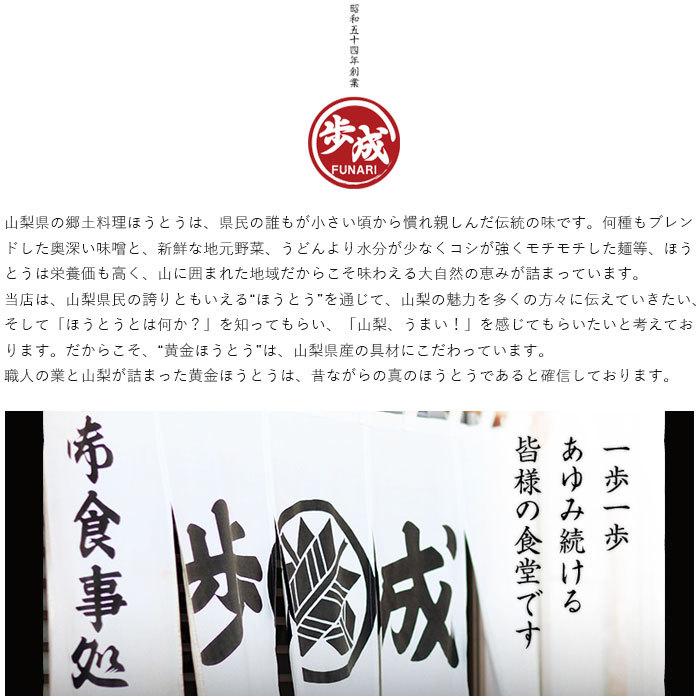 昭和五十四年創業
歩成
FUNARI
山梨県の郷土料理ほうとうは、県民の誰もが小さい頃から慣れ親しんだ伝統の味です。何種もブレン
ドした奥深い味噌と、新鮮な地元野菜、うどんより水分が少なくコシが強くモチモチした麺等、ほう
とうは栄養価も高く、山に囲まれた地域だからこそ味わえる大自然の恵みが詰まっています。
当店は、山梨県民の誇りともいえる“ほうとう”を通じて、山梨の魅力を多くの方々に伝えていきたい、
そして「ほうとうとは何か？」を知ってもらい、「山梨、うまい！」を感じてもらいたいと考えてお
ります。だからこそ、“黄金ほうとう”は、山梨県産の具材にこだわっています。
職人の業と山梨が詰まった黄金ほうとうは、昔ながらの真のほうとうであると確信しております。
一歩一歩
あゆみ続ける
皆様の食堂です
歩成
御食事処